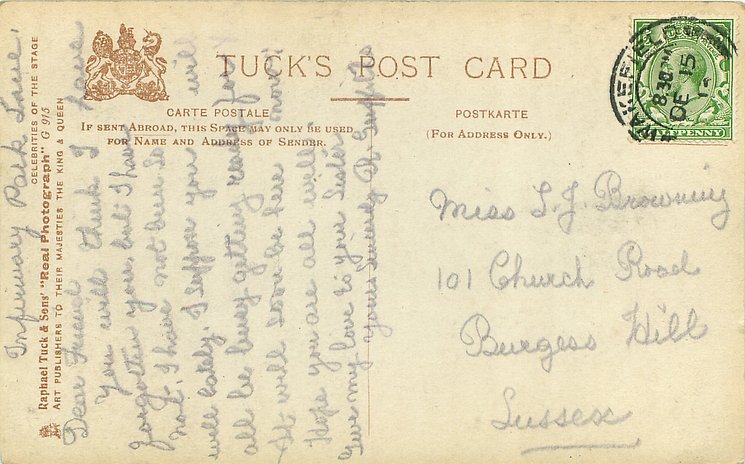 TUCK'S POST CARD
CARTE POSTALE
POSTKARTE
IF SENT ABROAD, THIS SPACE MAY ONLY BE USED
FOR NAME AND ADDRESS OF SENDER.
(FOR ADDRESS ONLY.)
CELEBRITIES OF THE STAGE
Raphael Tuck & Sons' "Real Photograph" G 915
ART PUBLISHERS TO THEIR MAJESTIES THE KING & QUEEN
WAKEFIELD
8.30 PM
DE 15
HALFPENNY
Infirmary Park Lane,
Dear Friend
You will think I have
forgotten you but I have
not. I have not been so
well lately. I suppose you will
all be busy getting ready for
It will soon be here now
Hope you are all well
Give my love to your Sister
Yours Sincerely
Miss L. J. Browning
101 Church Road
Burgess Hill
Sussex